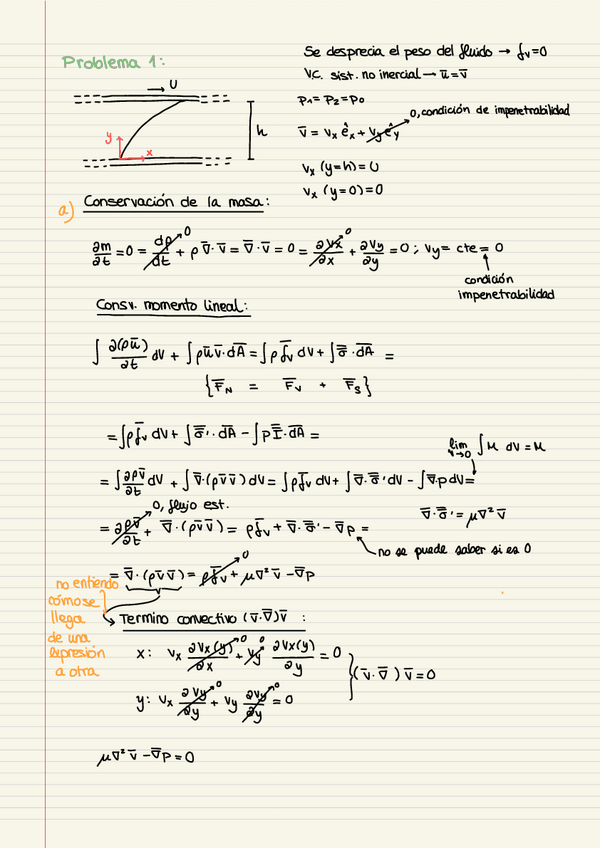 Problema 1:
Se desprecia el peso del fluido → f̄ᵥ=0
V.C. sist. no inercial → ū=v̄
P₁=P₂=P₀
0, condición de impenetrabilidad
v̄ = vₓ êₓ + v_y ê_y
vₓ (y=h) = U
vₓ (y=0) = 0
U
h
y
x
a) Conservación de la masa:
∂m/∂t = 0 = dρ/dt⁰ + ρ ∇̄·v̄ = ∇̄·v̄ = 0 = ∂vₓ/∂x⁰ + ∂v_y/∂y = 0 ; v_y = cte = 0
condición
impenetrabilidad
Consv. momento lineal:
∫ ∂(ρū)/∂t dV + ∫ ρū v̄·dA̅ = ∫ ρ f̄ᵥ dV + ∫ σ̿ · dA̅ =
{F̄_N = F̄_V + F̄_S}
= ∫ ρ f̄ᵥ dV + ∫ σ̿'· dA̅ − ∫ P I̿ · dA̅ =
lim V→0 ∫ M dV = M
= ∫ ∂ρv̄/∂t dV + ∫ ∇̄·(ρv̄v̄) dV = ∫ ρ f̄ᵥ dV + ∫ ∇̄·σ̿' dV − ∫ ∇̄·p dV =
0, flujo est.
∇̄·σ̿' = μ∇²v̄
= ∂ρv̄/∂t + ∇̄·(ρv̄v̄) = ρ f̄ᵥ + ∇̄·σ̿' − ∇̄p =
no se puede saber si es 0
= ∇̄·(ρv̄v̄) = ρ f̄ᵥ⁰ + μ∇²v̄ − ∇̄p
no entiendo
cómo se
llega
de una
expresión
a otra
Termino convectivo (v̄·∇̄)v̄ :
x: vₓ ∂vₓ(y)/∂x⁰ + v_y⁰ ∂vₓ(y)/∂y = 0
(v̄·∇̄)v̄ = 0
y: vₓ ∂v_y/∂x⁰ + v_y ∂v_y/∂y⁰ = 0
μ∇²v̄ − ∇̄p = 0